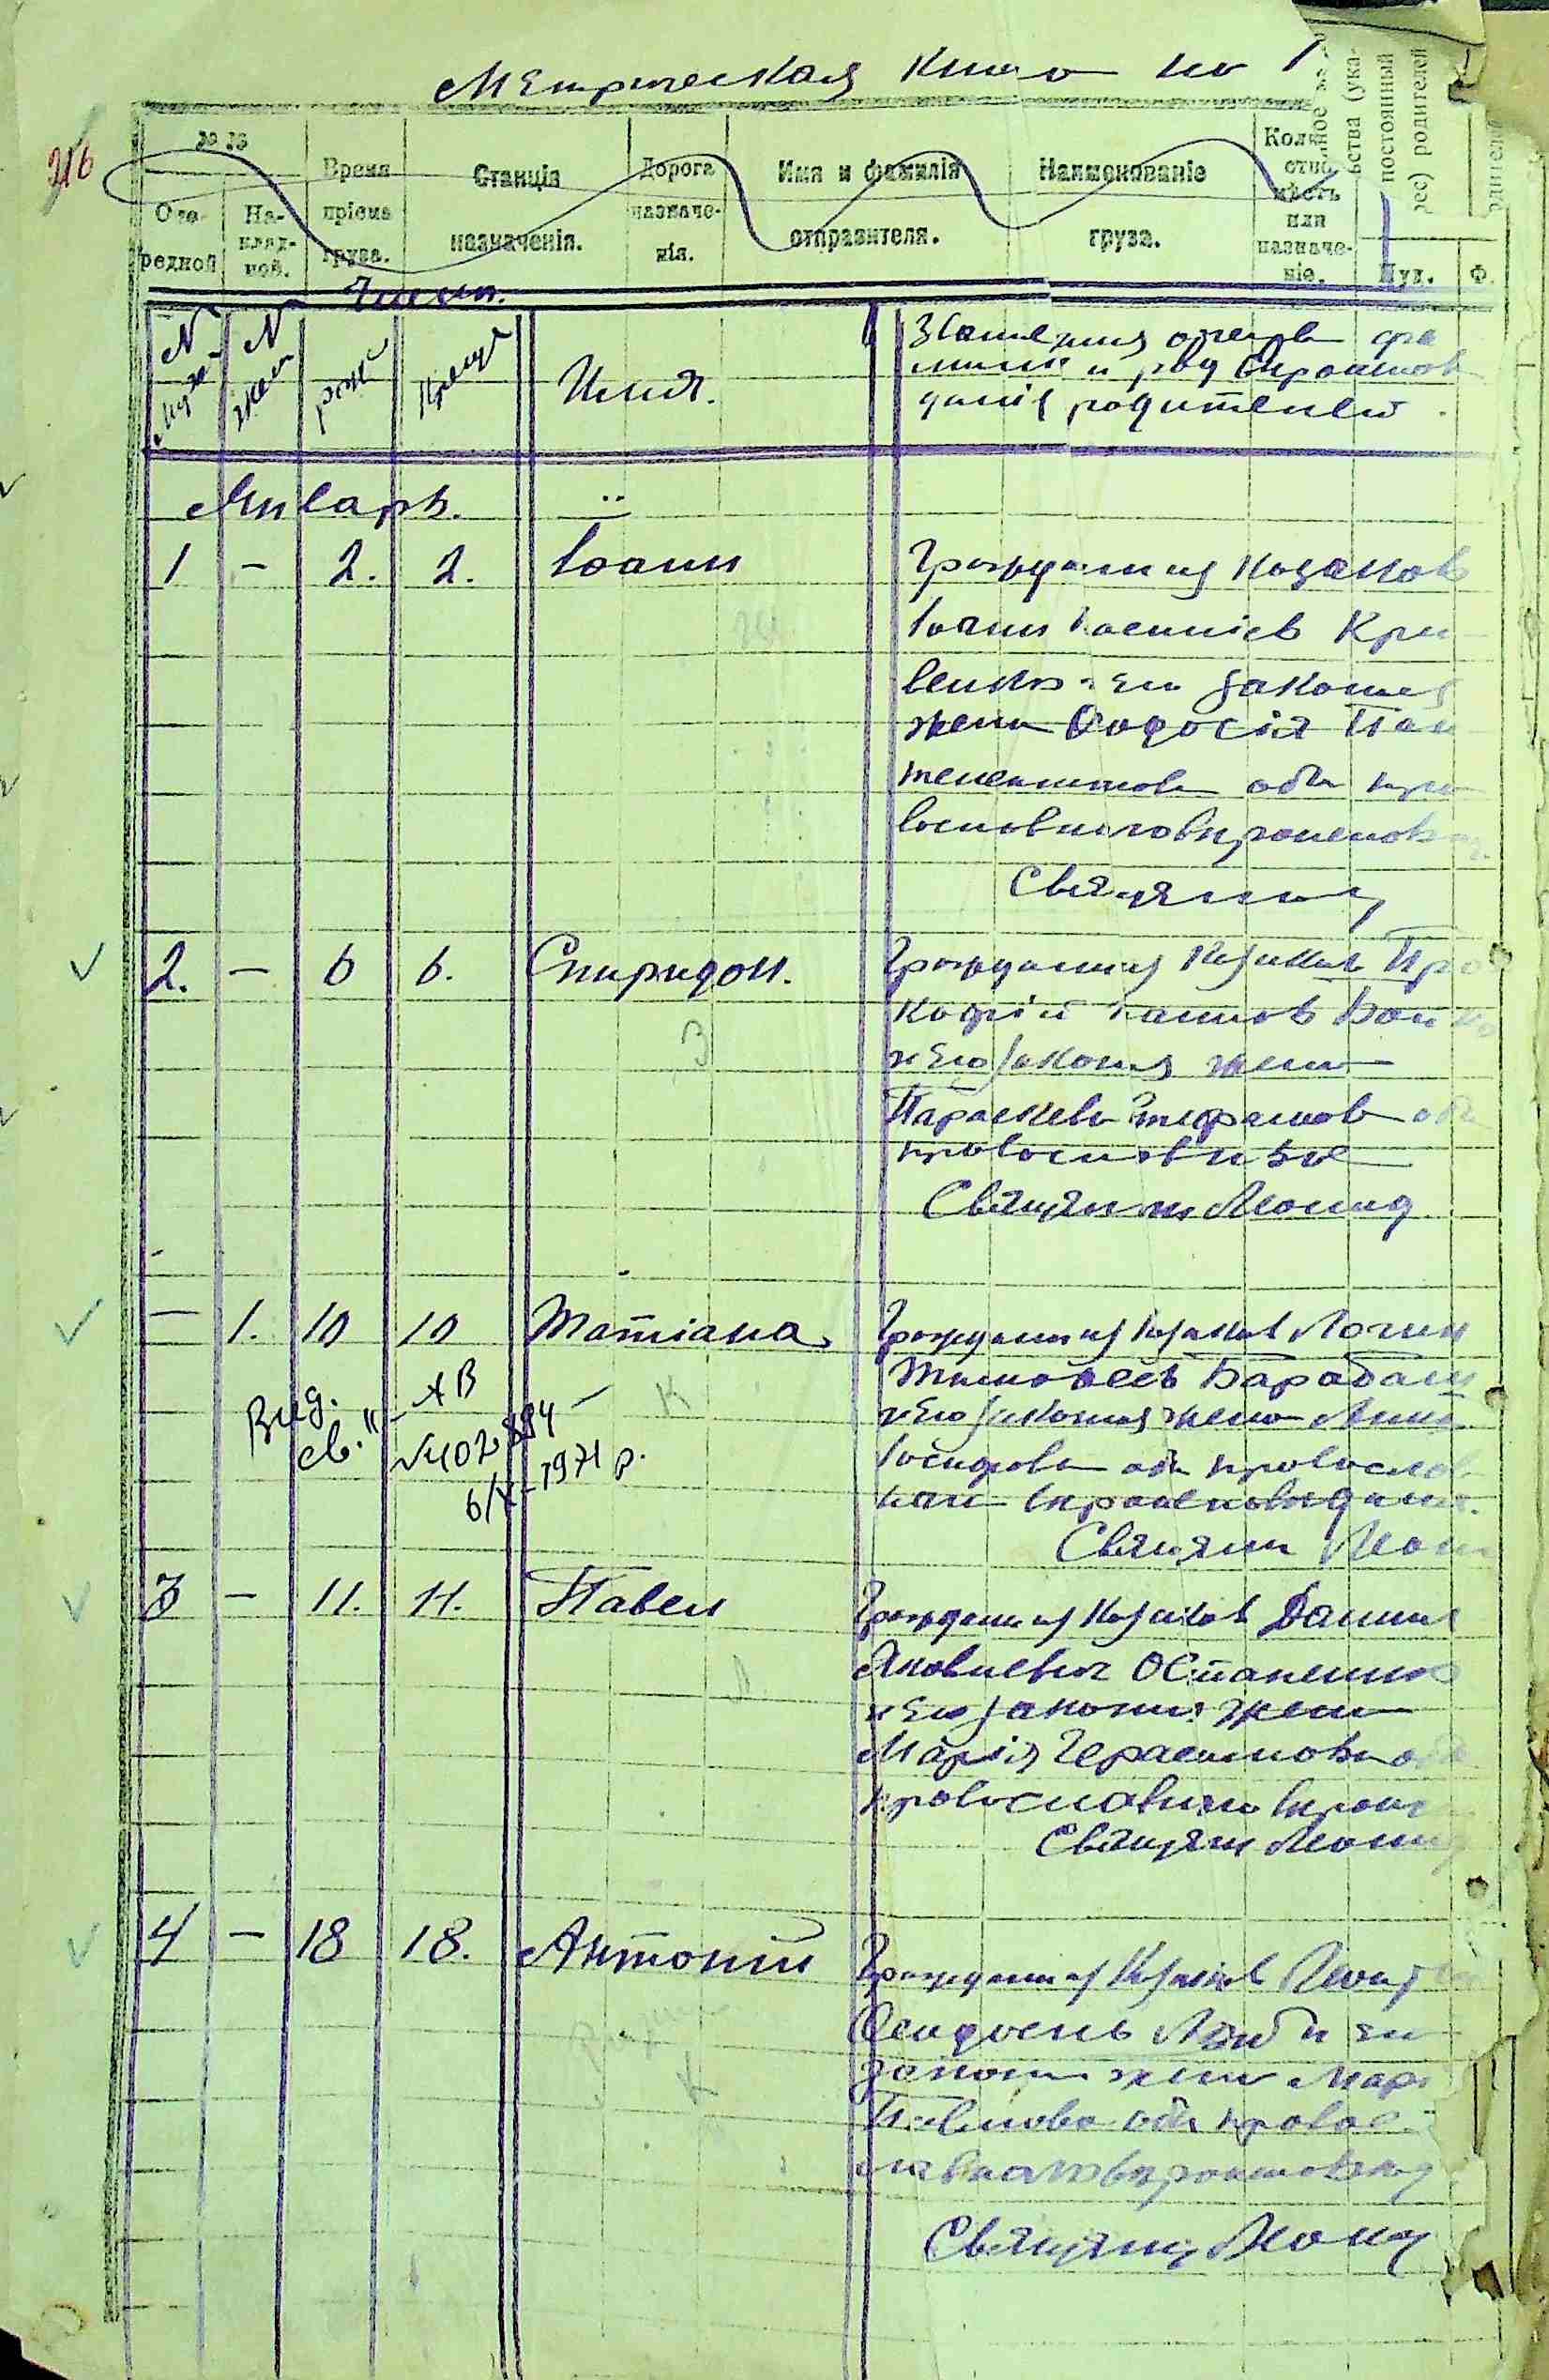 Метрическая книга на 1
216
№ №
Оче-
редной
На-
клад-
ной.
Время
пріема
груза.
Станція
назначенія.
Дорога
назначе-
нія.
Имя и фамилія
отправителя.
Наименованіе
груза.
Коли-
отво
мѣстъ
или
назначе-
ніе.
ьства (ука-
постоянный
рес) родителей
Пуд.
Ф.
Число.
№ муж.
№ жен
рожд
крещ
Имя.
Звание имя отчество фа
милия и род вероиспов
дания родителей.
Январь.
1 - 2. 2. Іоанн
Гражданин из козаков
Кри
венко и его законная
жена Феодосія Пан
телеимонова оба пра
вославного вероисповед
Священник
2. - 6 6. Спиридон.
Гражданин из козаков Про
кофій Бойко
и его законная жена
Параскева оба
православные
Священник Леонид
- 1. 10 10 Татіана
Гражданин из козаков Логин
Тимофеев Барабаш
и его законная жена Анна
Іосифова оба православ
ного вероисповедания.
Священник Леон
Вид. св. II-ХВ
№402894
6/X-1971 р.
3 - 11. 11. Павел
Гражданин из козаков Даниил
Яковлевич Остапенко
и его законная жена
Марія Герасимовна оба
православного вероис
Священник Леонид
4 - 18 18. Антоній
Гражданин из козаков
и его
законная жена Мари
Павлова оба правос
лавного вероисповед
Священник Леонид